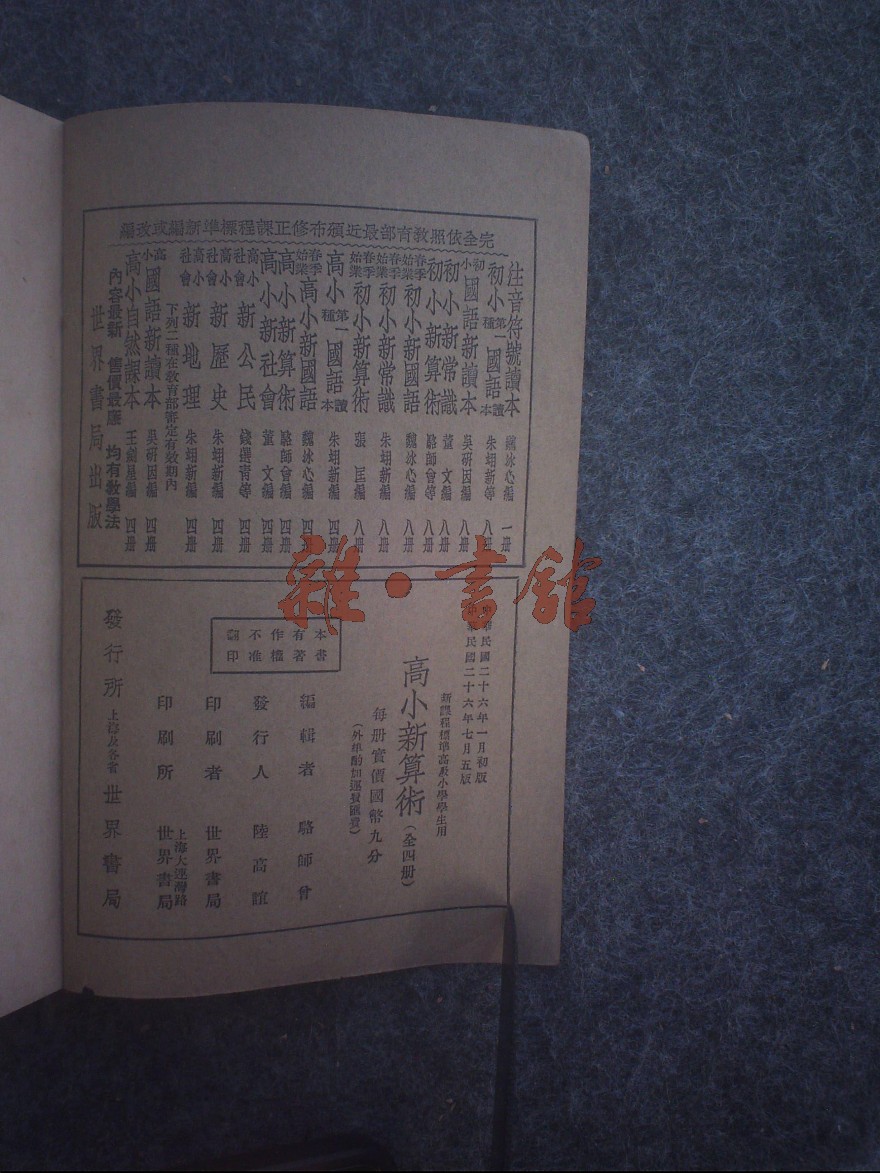 完全依照教育部最近頒布修正課程標準新編或改編
注音符號讀本 魏冰心編 一册
初小第一種國語讀本 朱翊新等 八册
初小國語新讀本 吳研因編 八册
初小新常識 董文編 八册
初小新算術 駱師曾等 八册
春季始業初小新國語 魏冰心編 八册
春季始業初小新常識 朱翊新編 八册
春季始業初小新算術 張匡編 八册
高小第一種國語讀本 朱翊新編 四册
春季始業高小新國語 魏冰心編 四册
高小新算術 駱師曾編 四册
高小新社會 董文編 四册
高小社會新公民 錢選青等 四册
高小社會新歷史 朱翊新編 四册
高小社會新地理 朱翊新編 四册
下列二種在教育部審定有效期內
高小國語新讀本 吳研因編 四册
高小自然課本 王劍星編 四册
內容最新 售價最廉 均有教學法
世界書局出版
雜·書館
中華民國二十六年一月初版
中華民國二十六年七月五版
新課程標準高級小學學生用
高小新算術(全四册)
每册實價國幣九分
(外埠酌加運費匯費)
本書有著作權不准翻印
編輯者 駱師曾
發行人 陸高誼
印刷者 世界書局
印刷所 上海大連灣路世界書局
發行所 上海及各省世界書局